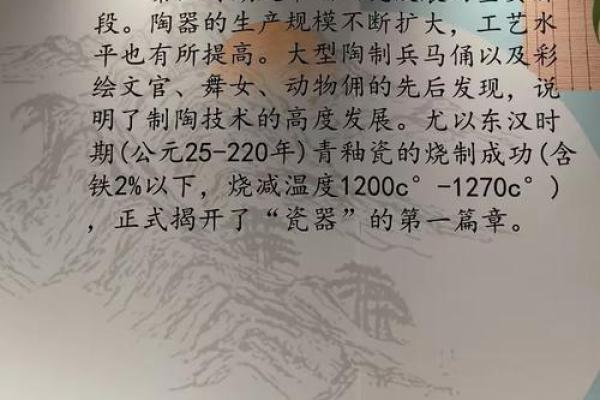 段。陶器的生产规模不断扩大，工艺水
平也有所提高。大型陶制兵马俑以及彩
绘文官、舞女、动物俑的先后发现，说
明了制陶技术的高度发展。尤以东汉时
期(公元25-220年)青釉瓷的烧制成功(含
铁2%以下，烧减温度1200c°-1270c°)
，正式揭开了“瓷器”的第一篇章。